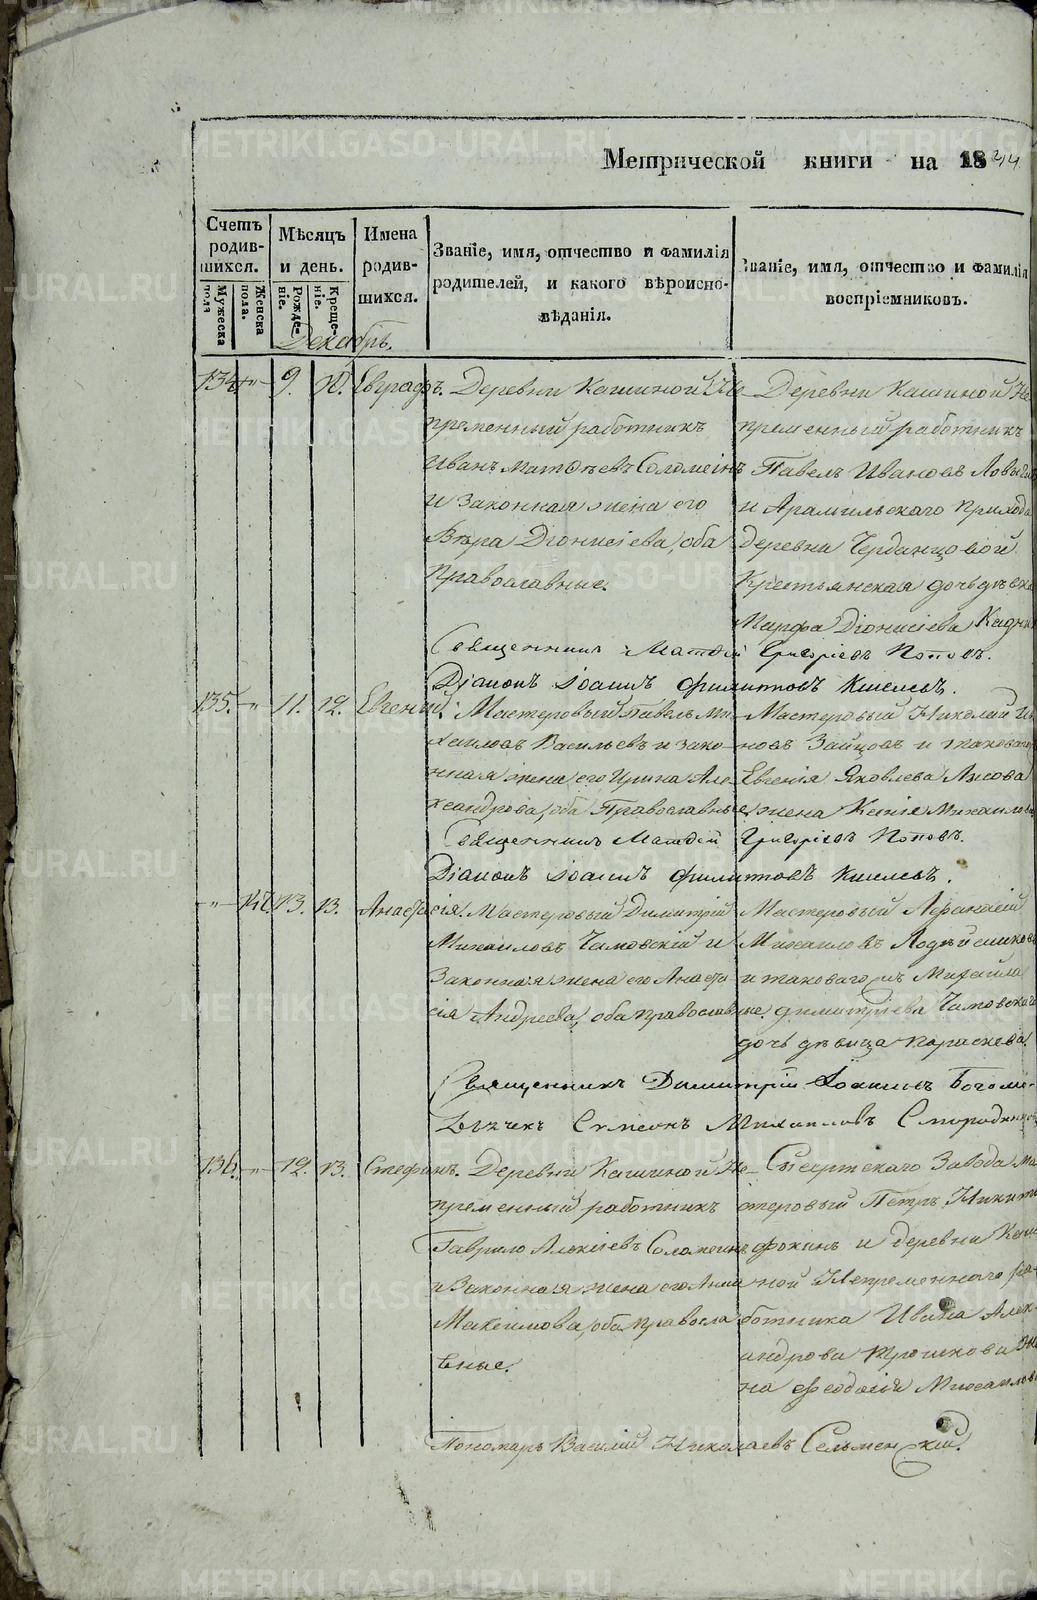 Метрической книги на 1844.
Счетъ родившихся.
Мужеска пола
Женска пола.
Мѣсяцъ и день.
Рождение.
Крещение.
Имена родившихся.
Званіе, имя, отчество и фамилія
родителей, и какого вѣроиспо-
вѣданія.
Званіе, имя, отчество и фамилія
воспріемниковъ.
Декабрь.
134. -"- 9. 10. Евграфъ. Деревни Кашиной Не-
пременный работникъ
Иванъ Матѳеевъ Соломеинъ
и законная жена его
Вѣра Діонисіева, оба
православные.
Деревни Кашиной Не-
пременный работникъ
Павелъ Ивановъ
и Арамильскаго прихода
деревни Черданцовой
Крестьянская дочь дѣвка
Марфа Діонисіева
Священникъ Матѳей Григоріевъ Поповъ.
Діаконъ Іоаннъ Филипповъ Киселевъ.
135. -"- 11. 12. Евгеній. Мастеровый Павелъ Ми-
хаиловъ Васильевъ и зако-
нная жена его Ирина Але-
ксандрова, оба Православные
Мастеровый Николай Ива-
новъ Зайцовъ и таковаго
Евгенія Яковлева Лисова
жена Ксенія Михаилова
Священникъ Матѳей Григоріевъ Поповъ.
Діаконъ Іоаннъ Филипповъ Киселевъ.
-"- 142. 13. 13. Анастасія. Мастеровый Димитрій
Михаиловъ Чамовскій и
Законная жена его Анаста-
сія Андреева, оба православные.
Мастеровый Аѳанасій
Михаиловъ
и таковаго Михаила
Димитріева Чамовскаго
дочь дѣвица Параскева.
Священникъ Димитрій Іоаннъ
Дьячекъ Симеонъ Михаиловъ Смородинцовъ
136. -"- 12. 13. Стефанъ. Деревни Кашиной Не-
пременный работникъ
Гаврило Алексіевъ Соломеинъ
и Законная жена его Анна
Максимова, оба правосла-
вные.
Сысертскаго Завода Ма-
стеровый Петръ Никитинъ
Фокинъ и деревни Каши-
ной Непременнаго ра-
ботника Ивана Алек-
андрова Трошкова же-
на Феодосія Михаилова
Пономарь Василій Николаевъ Сельменскій.
METRIKI.GASO-URAL.RU